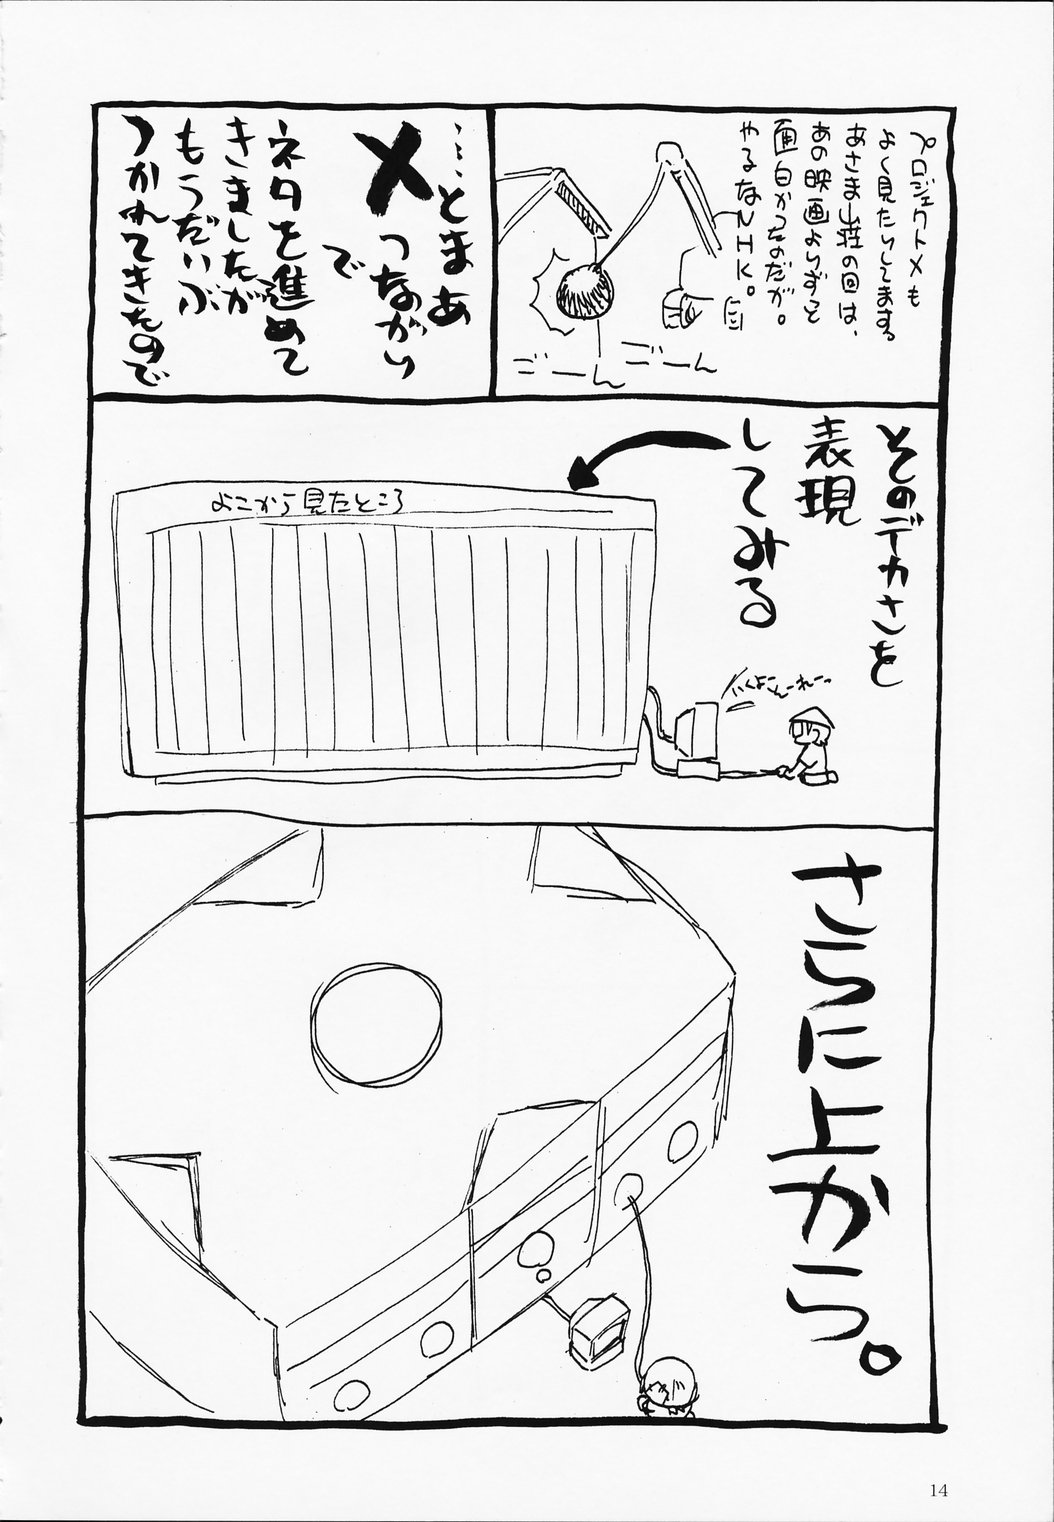 プロジェクトXも
よく見たりしてます。
あさま山荘の回は、
あの映画よりずっと
面白かったのだが。
やるなNHK。
ごーん
ごーん
……とまあ
Xつながり
で
ネタを進めて
きましたが
もうだいぶ
つかれてきたので
そのデカさを
表現
してみる
よこから見たところ
いくよこんーれーっ
さらに上から。
14